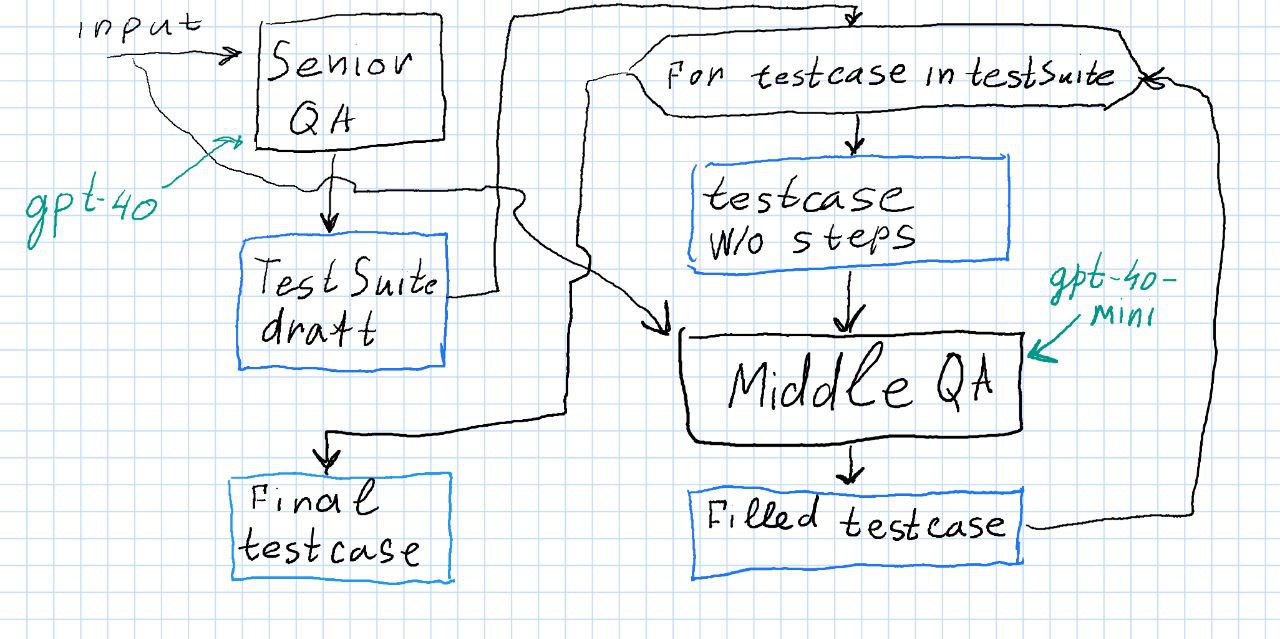 input
Senior
QA
gpt-4o
TestSuite
draft
For testcase in testSuite
testcase
w/o steps
gpt-4o-
mini
Middle QA
Filled testcase
Final
testcase